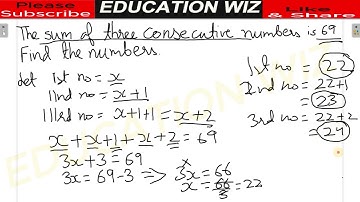 Please Subscribe
EDUCATION WIZ
Like & Share
The sum of three consecutive numbers is 69
Find the numbers.
let 1st no = x
IInd no = x+1
IIIrd no = x+1+1 = x+2
x + x+1 + x+2 = 69
3x+3 = 69
3x = 69-3 => 3x = 66
x = 66/3 = 22
1st no = 22
2nd no = 22+1
= 23
3rd no = 22+2
= 24
EDUCATION WIZ